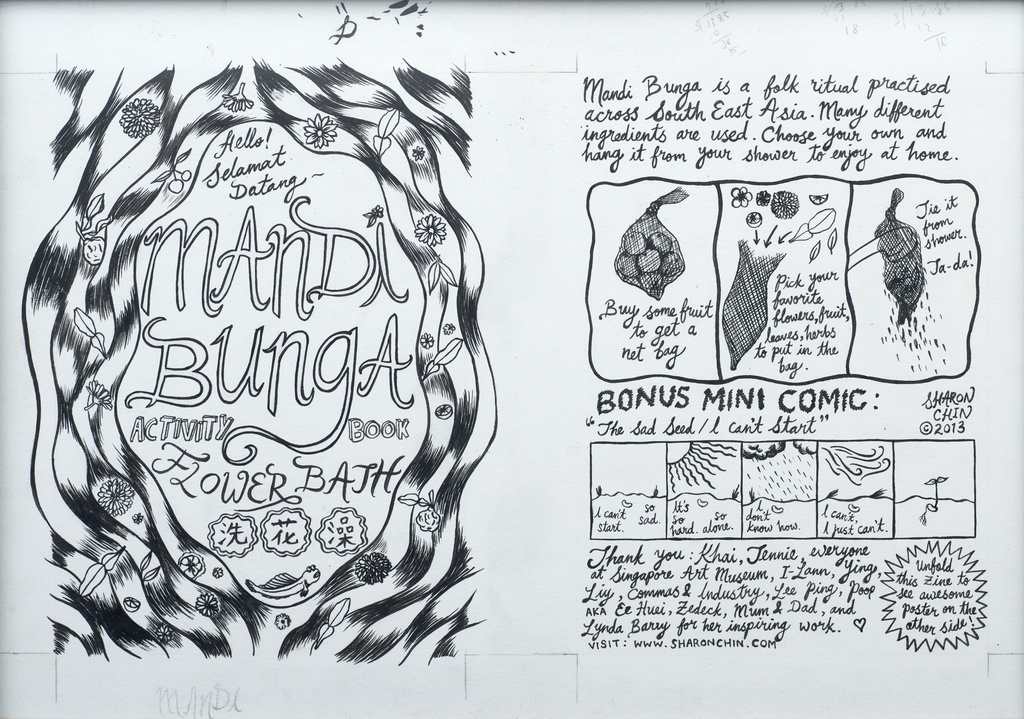 Hello!
Selamat
Datang~
MANDI
BUNGA
ACTIVITY BOOK
FLOWER BATH
洗花澡
MANDI
Mandi Bunga is a folk ritual practised
across South East Asia. Many different
ingredients are used. Choose your own and
hang it from your shower to enjoy at home.
Buy some fruit
to get a
net bag
Pick your
favorite
flowers, fruit,
leaves, herbs
to put in the
bag.
Tie it
from
shower.
Ta-da!
BONUS MINI COMIC:
"The Sad Seed / I Can't Start"
SHARON
CHIN
©2013
I can't
start.
so
sad.
It's
so
hard.
so
alone.
I
don't
know how.
I can't.
I just can't.
Thank you: Khai, Jennie, everyone
at Singapore Art Museum, I-Lann, Ying,
Liy, Commas & Industry, Lee Ping, Poop
AKA Ee Huei, Zedeck, Mum & Dad, and
Lynda Barry for her inspiring work. ♡
VISIT: WWW.SHARONCHIN.COM
Unfold
this zine to
see awesome
poster on the
other side!